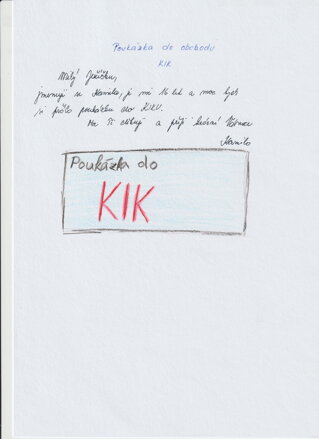 Poukázka do obchodu
KIK
Milý Ježíšku,
jmenuji se Kamila, je mi 16 let a moc bych
si přála poukázku do KIKU.
Moc Ti děkuji a přeji krásné Vánoce
Kamila
Poukázka do
KIK